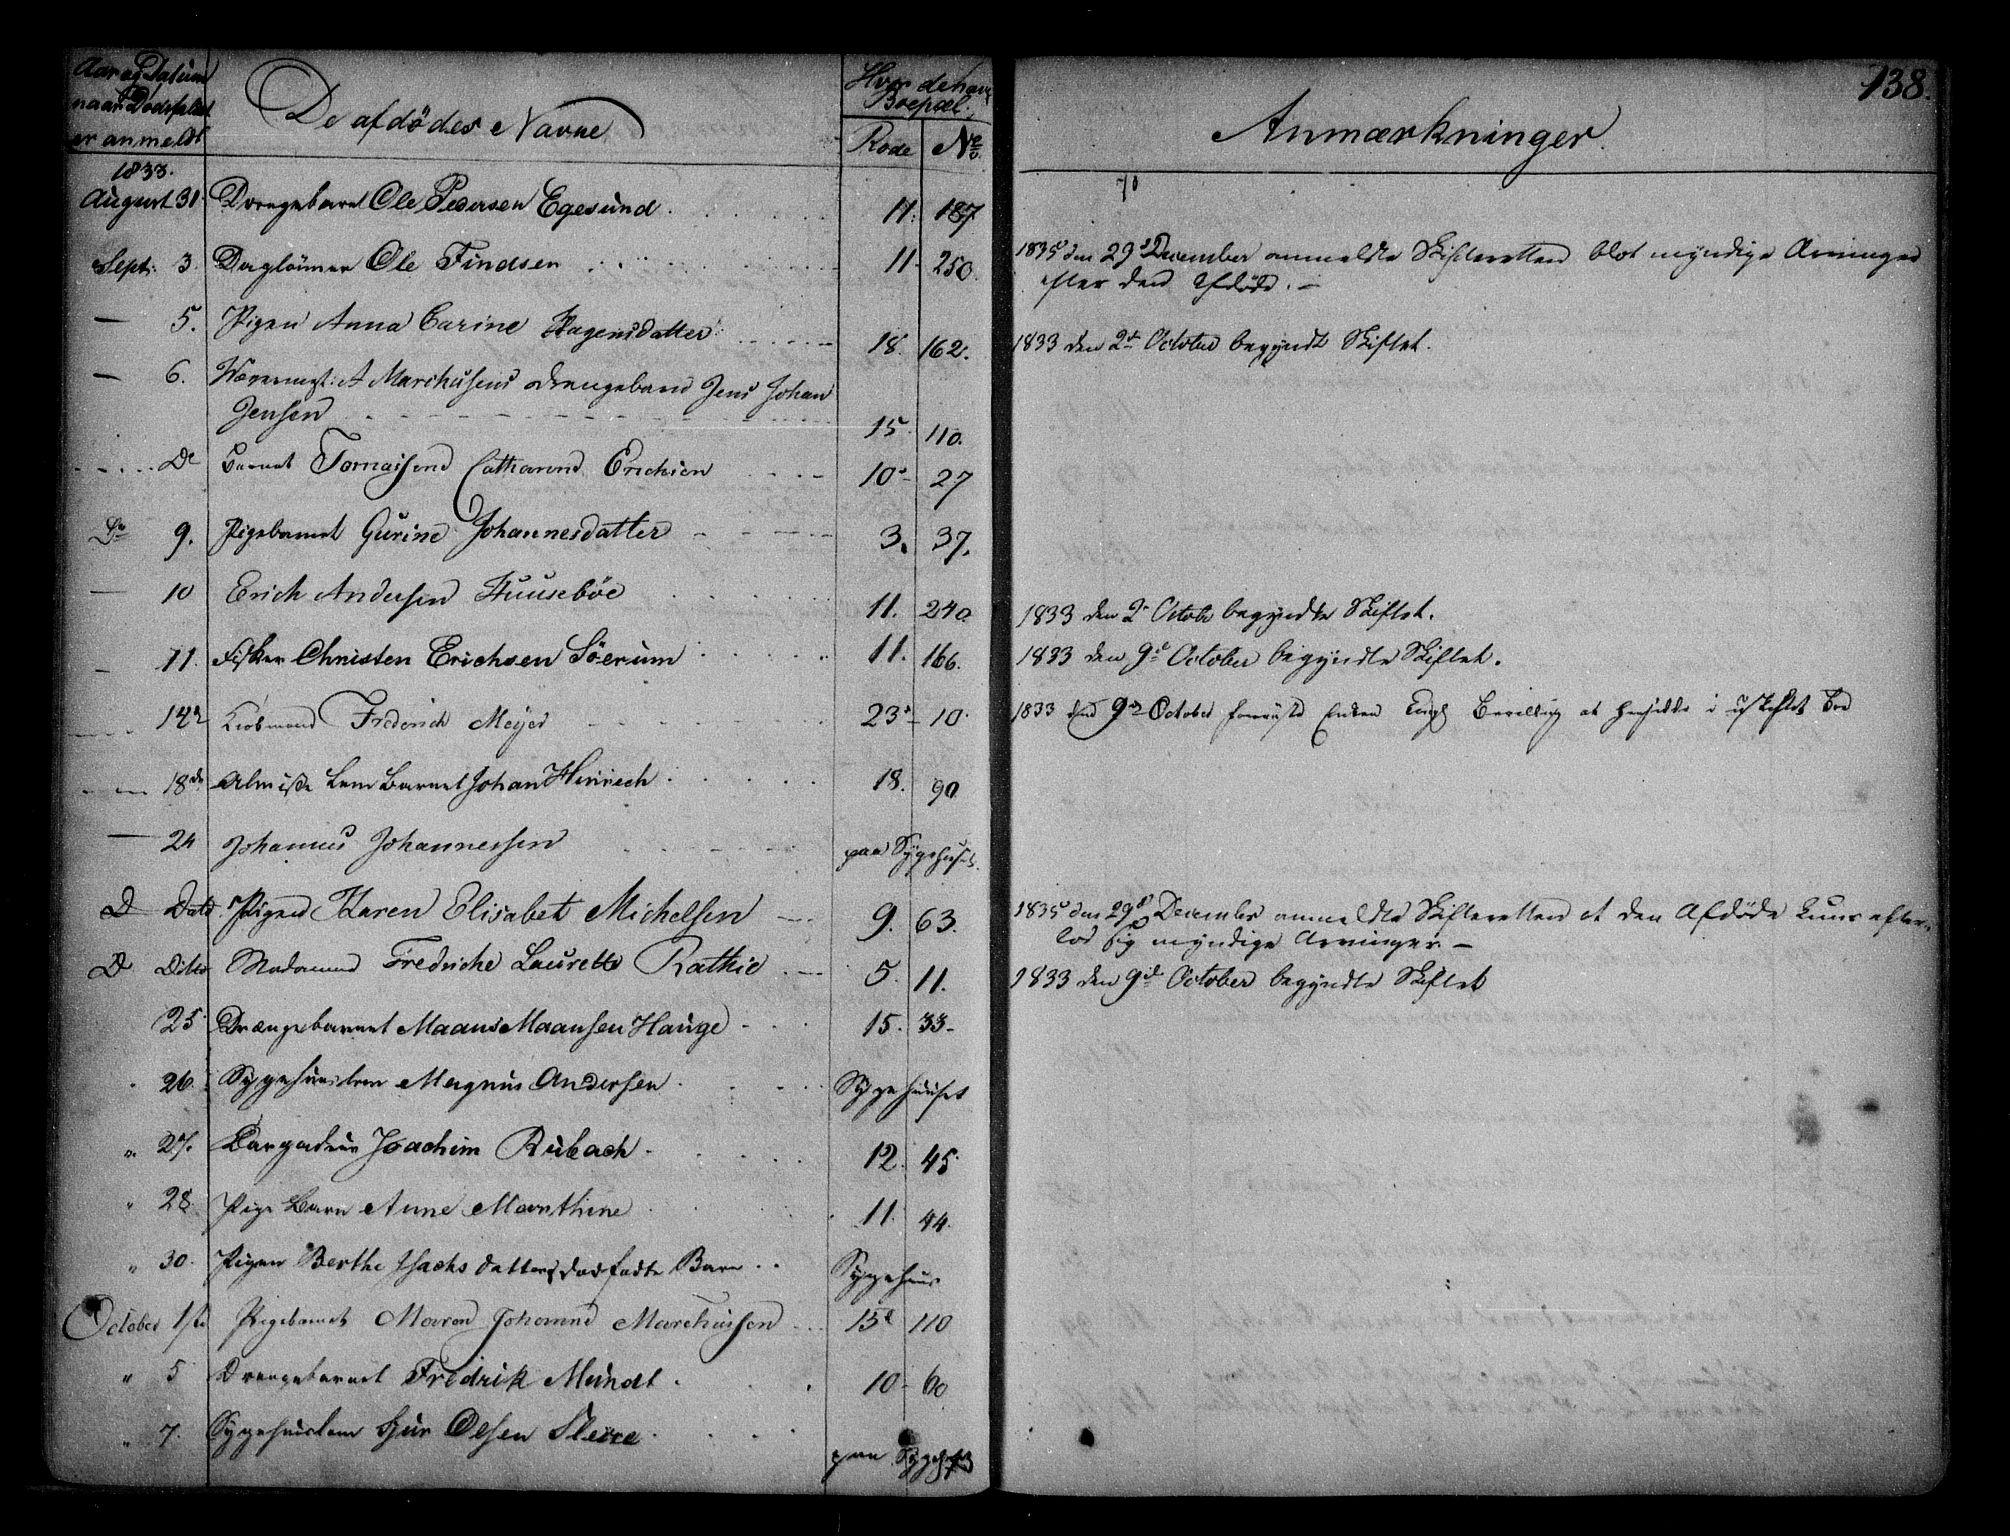 Aar og Datum
naar Dødsfaldet
er anmeldt
De afdødes Navne
Hvor de havt
Boepæl.
Rode No
Anmærkninger.
138.
1833.
August 31 Drengebarnet Ole Pedersen Egesund. 11. 187
Sept: 3. Dagleiner Ole Findsen 11. 250.
1835 den 29d December anmeldte Skifteretten blot myndige Arvinger
efter den Afdøde. —
— 5. Pigen Anna Carine Hagensdatter 18. 162.
1833 den 2d October begyndt Skiftet.
— 6. A Marchusens Drengebarn Jens Johan
Jensen 15 110.
Do Barnet Catharine Erichsen 10 - 27
Do 9. Pigebarnet Gurine Johannesdatter 3. 37.
— 10 Erich Andersen Huusebøe 11. 240
1833 den 2d Octobr begyndte Skiftet.
— 11. Fisker Christen Erichsen Söerum 11. 166.
1833 den 9d October begyndte Skiftet.
14d Kiøbmand Frederich Meyer 23 - 10.
1833 den 9de October foreviiste Enken Bevilling at hensidde i uskiftet Boe
18de Almisse Lem Barnet Johan Hinrich. 18. 90
— 24 Johannes Johannessen paa Sygehuset.
D Dato Pigen Karen Elisabet Michelsen 9. 63.
1835 den 29d December anmeldte Skifteretten at den Afdøde kuns efter-
lod sig myndige Arvinger. —
D Dito Madame Fredriche Laurette Rathie 5. 11.
1833 den 9d October begyndte Skiftet
25 Drængebarnet Maans Maansen Hauge 15. 33-
26 Sygehuuslem Magnus Andersen. Sygehuuset
" 27. Joachim Rubach. 12. 45.
" 28 Pige Barn Anne Marthine 11. 44.
" 30. Pigen Berthe Isachsdatters dødfødte Barn.. Sygehuus
October 1ste Pigebarnet Maren Johanne Marchussen 15d 110
" 5 Drengebarnet Fredrik Mundt. 10 - 60
" 7. Sygehuuslem Sjur Olsen paa